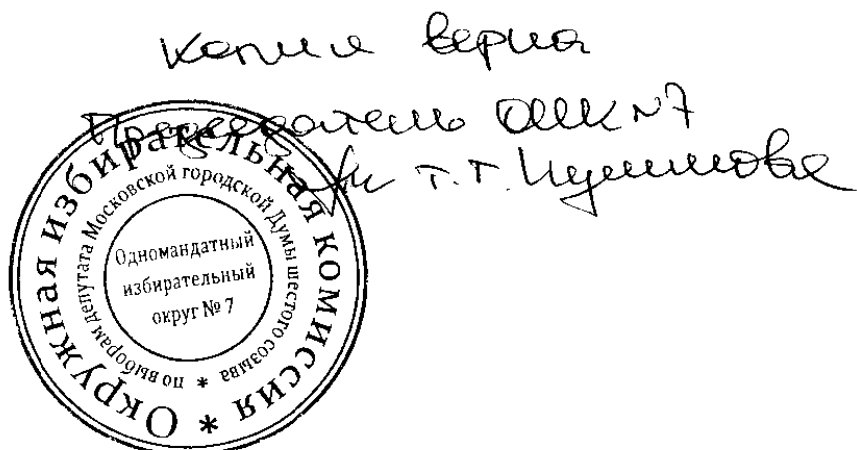 Копия верна
Председатель ОИК №7
Т.Т.
Окружная избирательная комиссия *
по выборам депутата Московской городской Думы шестого созыва *
Одномандатный
избирательный
округ № 7